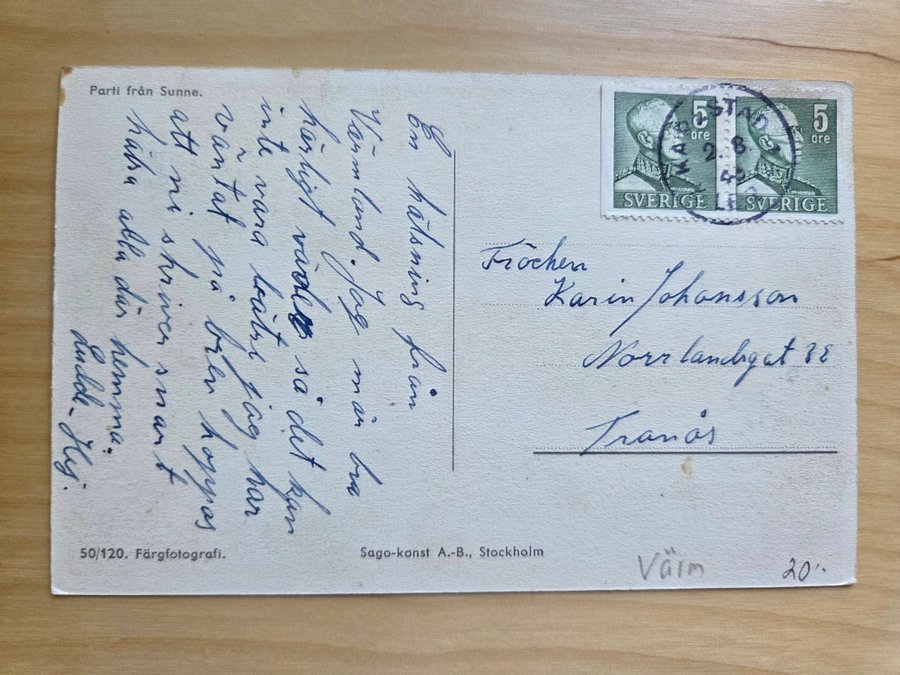 Parti från Sunne.
En hälsning från
Värmland. Jag mår bra
härligt väder så det kan
inte vara bättre jag har
väntat på brev hoppas
att ni skriver snart
hälsa alla där hemma.
Hej.
50/120. Färgfotografi.
Sago-konst A.-B., Stockholm
5
öre
SVERIGE
5
öre
SVERIGE
KARLSTAD 1
2.8.
Fröcken
Karin Johansson
Norrlandsgat
Tranås
Värm
20:-